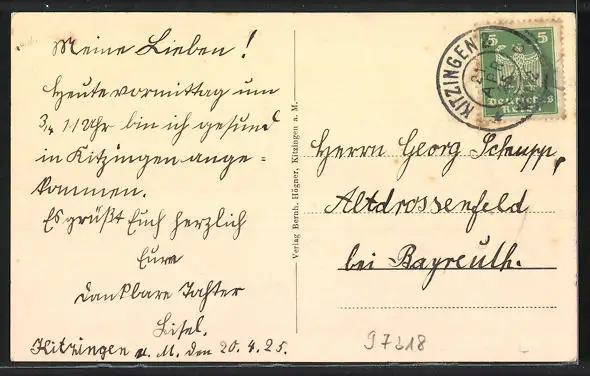 Meine Lieben!
Heute vormittag um
3/4 11 Uhr bin ich gesund
in Kitzingen ange=
kommen.
Es grüßt Euch herzlich
Eure
dankbare Tochter
Lisel.
Kitzingen a. M. den 20. 4. 25.
Verlag Bernh. Högner, Kitzingen a. M.
KITZINGEN
5 5
DEUTSCHES
REICH
Herrn Georg Schupp,
Altdrossenfeld
bei Bayreuth.
97318